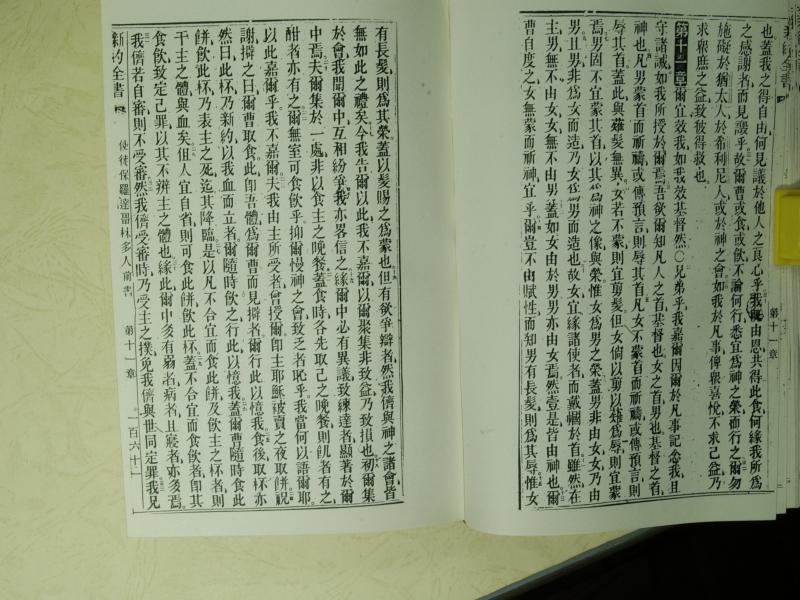 也蓋我之得自由何見議於他人之良心乎我既由恩共得此食何緣我所爲
之感謝者而見謗乎故爾曹或食或飲不論何行悉宜爲神之榮而行之爾勿
施礙於猶太人於希利尼人或於神之會如我於凡事俾衆喜悅不求己益乃
求衆庶之益致彼得救也
第十一章爾宜效我如我效基督然〇兄弟乎我嘉爾因爾於凡事記念我且
守諸誡如我所授於爾焉吾欲爾知凡人之首基督也女之首男也基督之首
神也凡男蒙首而祈禱或傳預言則辱其首凡女不蒙首而祈禱或傳預言則
辱其首蓋此與薙髮無異女若不蒙則宜剪髮但女倘以剪以薙爲辱則宜蒙
焉男固不宜蒙其首以其爲神之像與榮惟女爲男之榮蓋男非由女女乃由
男且男非爲女而造乃女爲男而造也故女宜緣諸使者而戴帼於首雖然在
主男無不由女女無不由男蓋如女由於男男亦由女焉然壹是皆由神也爾
曹自度之女無蒙而祈神宜乎爾豈不由賦性而知男有長髮則爲其辱惟女
第十一章
新約全書
有長髮則爲其榮蓋以髮賜之爲蒙也但有欲爭辯者然我儕與神之諸會皆
無如此之禮矣今我告爾以此我不嘉爾以爾聚集非致益乃致損也初爾集
於會我聞爾中互相紛爭我亦畧信之緣爾中必有異議致練達者顯著於爾
中焉夫爾集於一處非以食主之晚餐蓋食時各先取己之晚餐則飢者有之
酣者亦有之爾無室可食飲乎抑爾慢神之會致乏者恥乎我當何以語爾耶
以此嘉爾乎我不嘉爾夫我由主所受者曾授爾即主耶穌被賣之夜取餅祝
謝擘之曰爾曹取食此即吾體爲爾曹而見擘者爾行此以憶我食後取杯亦
然曰此杯乃新約以我血而立者爾隨時飲之行此以憶我蓋爾曹隨時食此
餅飲此杯乃表主之死迄其降臨是以凡不合宜而食此餅及飲主之杯者則
干主之體與血矣但人宜自省則可食此餅飲此杯蓋不合宜而食飲者即其
食飲致定己罪以其不辨主之體也緣此爾中多有弱者病者且寢者亦多焉
我儕若自審則不受審然我儕受審時乃受主之撲免我儕與世同定罪我兄
新約全書
使徒保羅達哥林多人前書
第十一章
百六十一